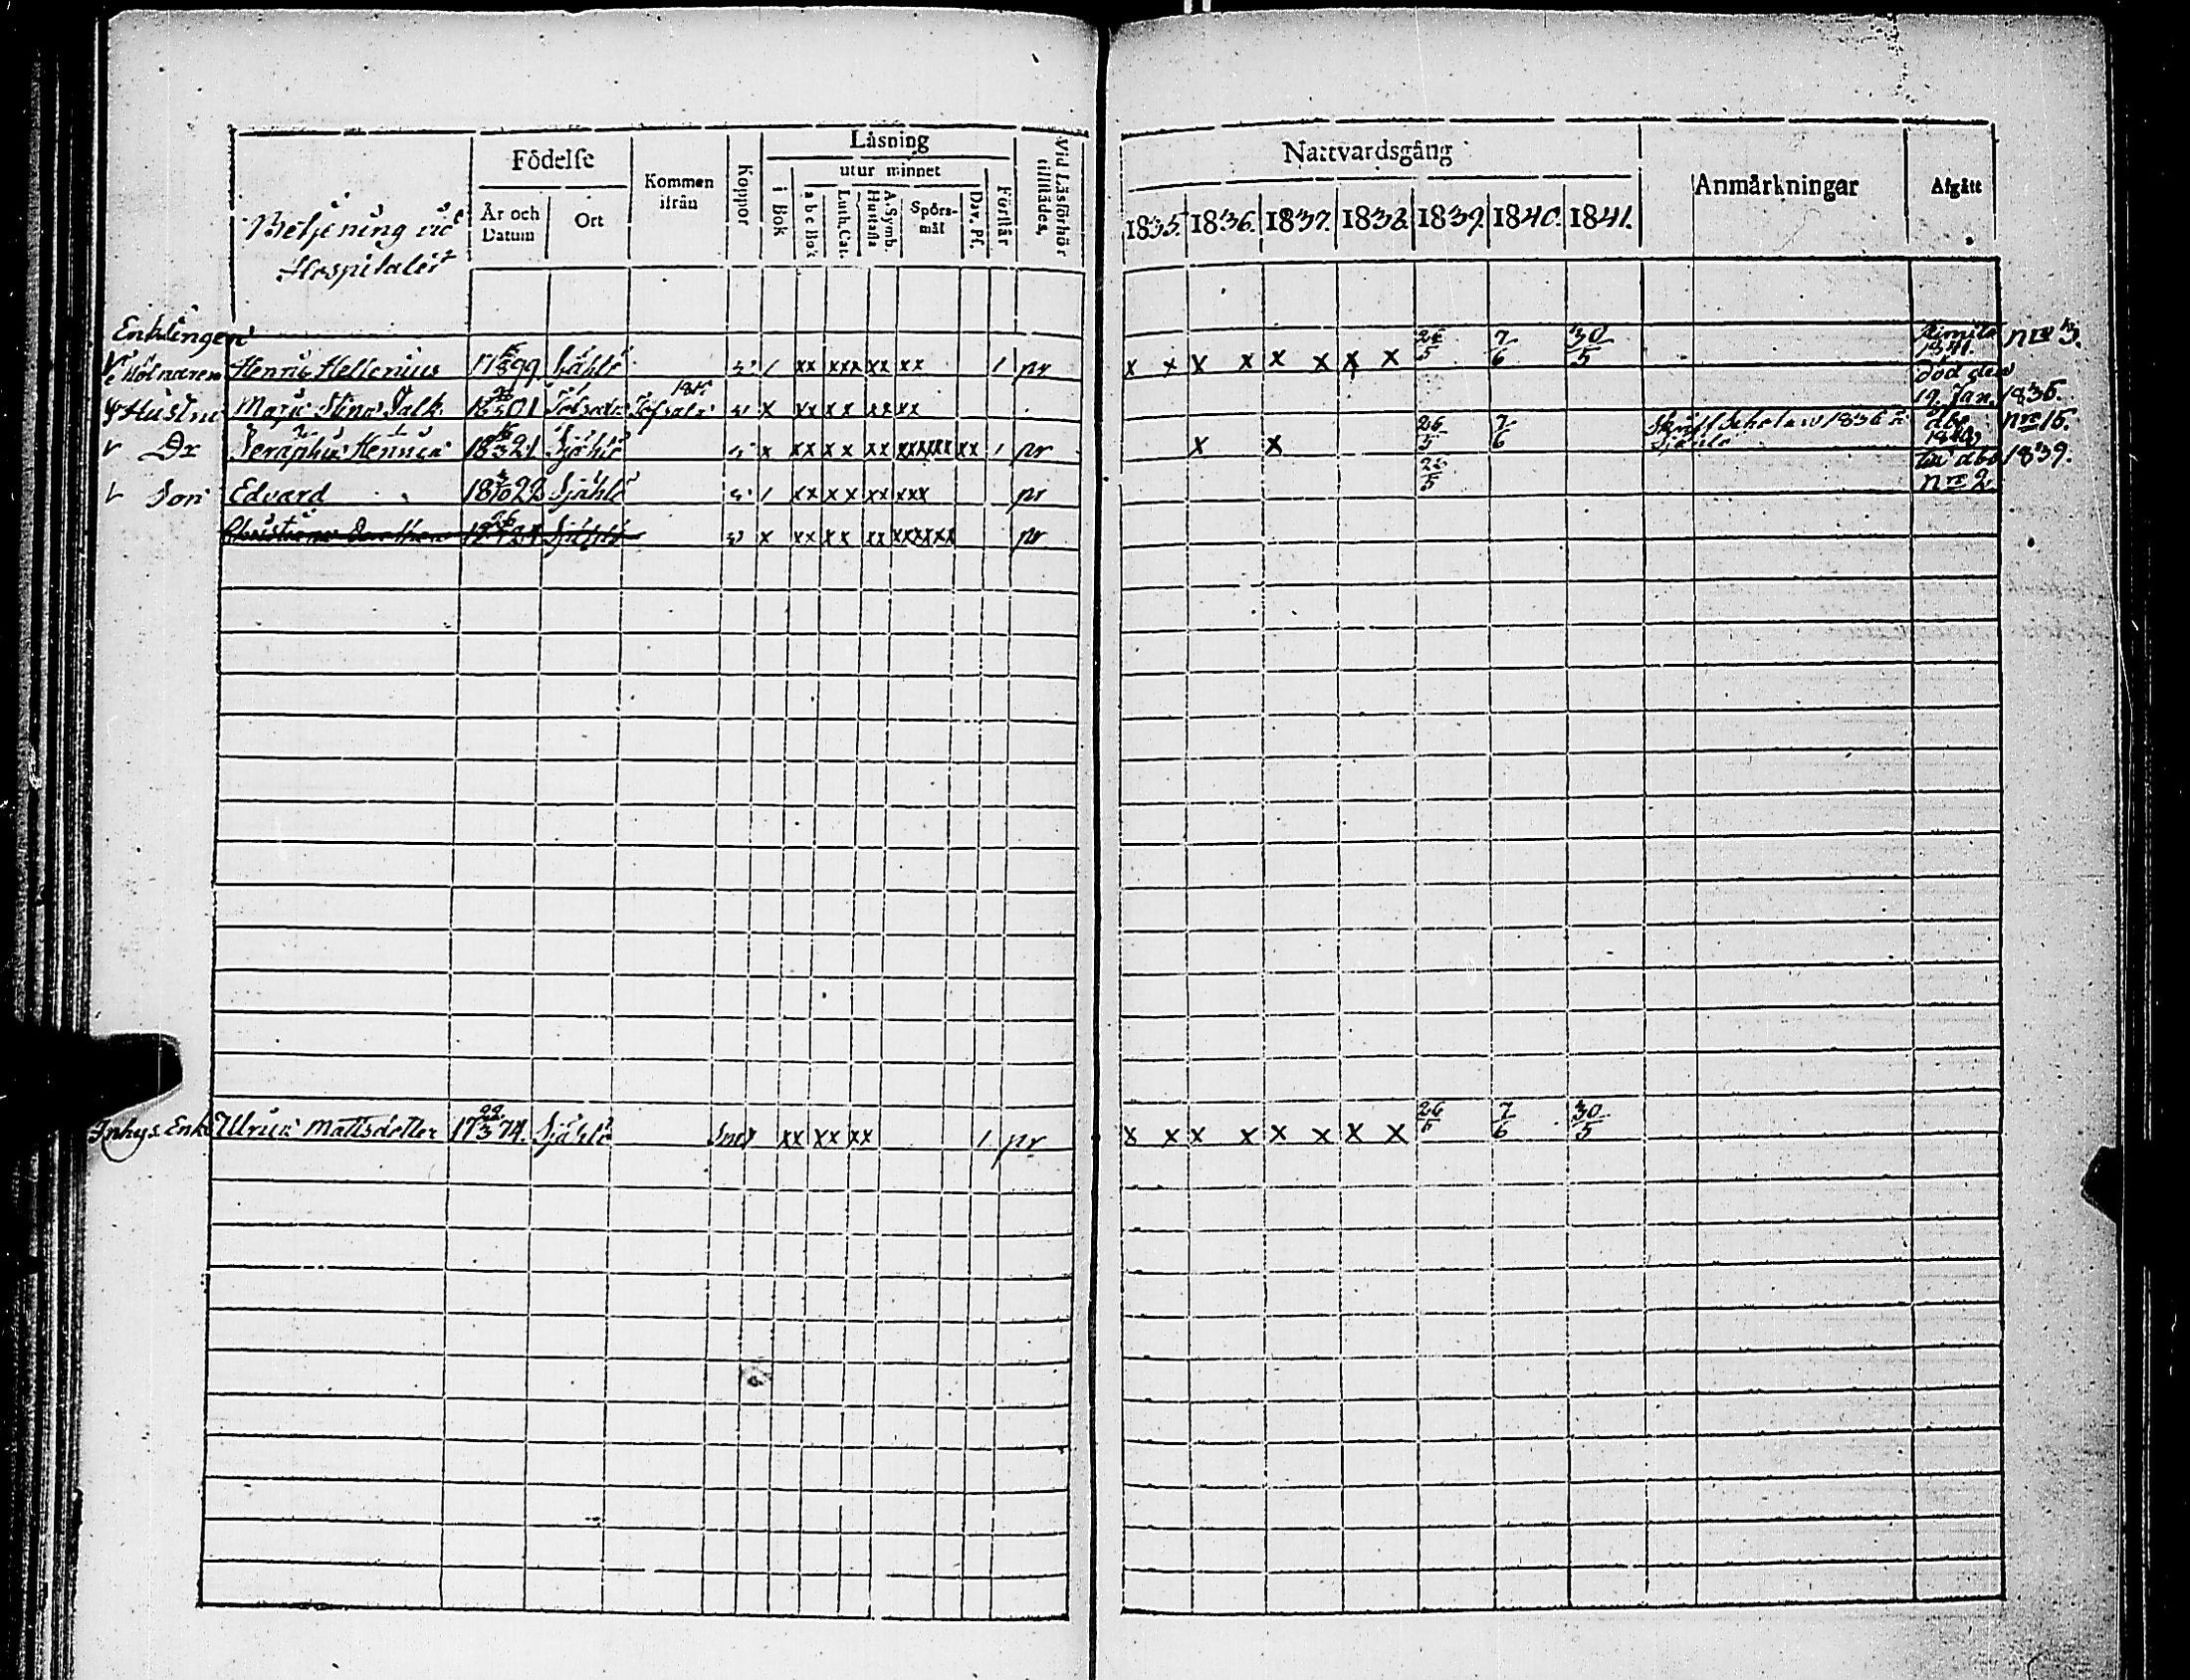 Betjening vid
Hospitalet
Födelse
År och Datum
Ort
Kommen ifrån
Koppor
Läsning
i Bok
utur minnet
a b c Bok
Luth. Cat.
A. Symb. Hustafla
Spörsmål
Dav. Ps.
Förstår
Vid Läsförhör tillstädes.
Nattvardsgång
1835. 1836. 1837. 1838. 1839. 1840. 1841.
Anmärkningar
Afgått
Enklingen
Henric Hellenius 1799 / xx xxx xx xx 1 pr x x x x x x x x 26/5 7/6 30/5 1841. nro 3.
Hustru Maja Stina Falk 1801 x xx xx xx xx död den 19. Jan. 1836.
Dr Seraphia Henrica 1821 Sjählö x xx xx xx xxxxxx xx 1 pr x x 26/5 7/6 1836 Sjählö dbo 1840 nro 15.
Son Edvard 1822 Sjählö / xx xx xx xxx pr 26/5 till dbo 1839. nro 2.
Christina Dorothea Sjählö x xx xx xx xxxxxx pr
Inhys. Enk. Ulrica Mattsdotter 17 22/3 74. Sjählö xx xx xx 1 pr x x x x x x x x 26/5 7/6 30/5